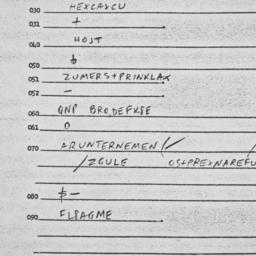 030 HEXCAXCU
031 +
040 HOJT
050 $
051 ZUMERS+PRINKLAX
052 -
060 GNP BRODEFKSE
061 O
070 ARUNTERNEMEN
/ZGULE OS+PREXNAREFU
080 $-
090 FLPAGME